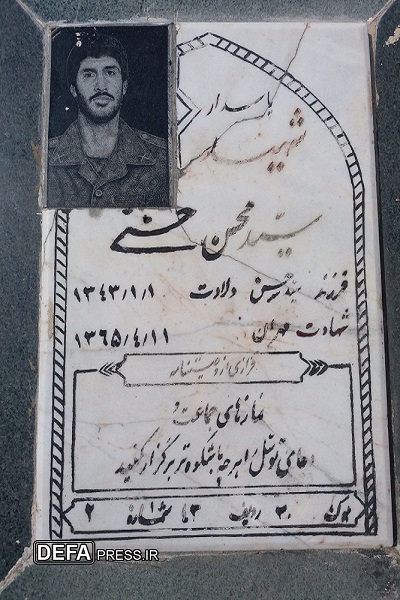 پاسدار
شهید
سید محسن حسنی
فرزند سید حسن ولادت ۱۳۴۳/۱/۱
شهادت مهران ۱۳۶۵/۴/۱۱
فرازی از وصیتنامه
نمازهای جماعت و
دعای توسل را هر چه باشکوه تر برگزار کنید
بلوک ۲۰ ردیف ۲ تا شماره ۲
DEFAPRESS.IR